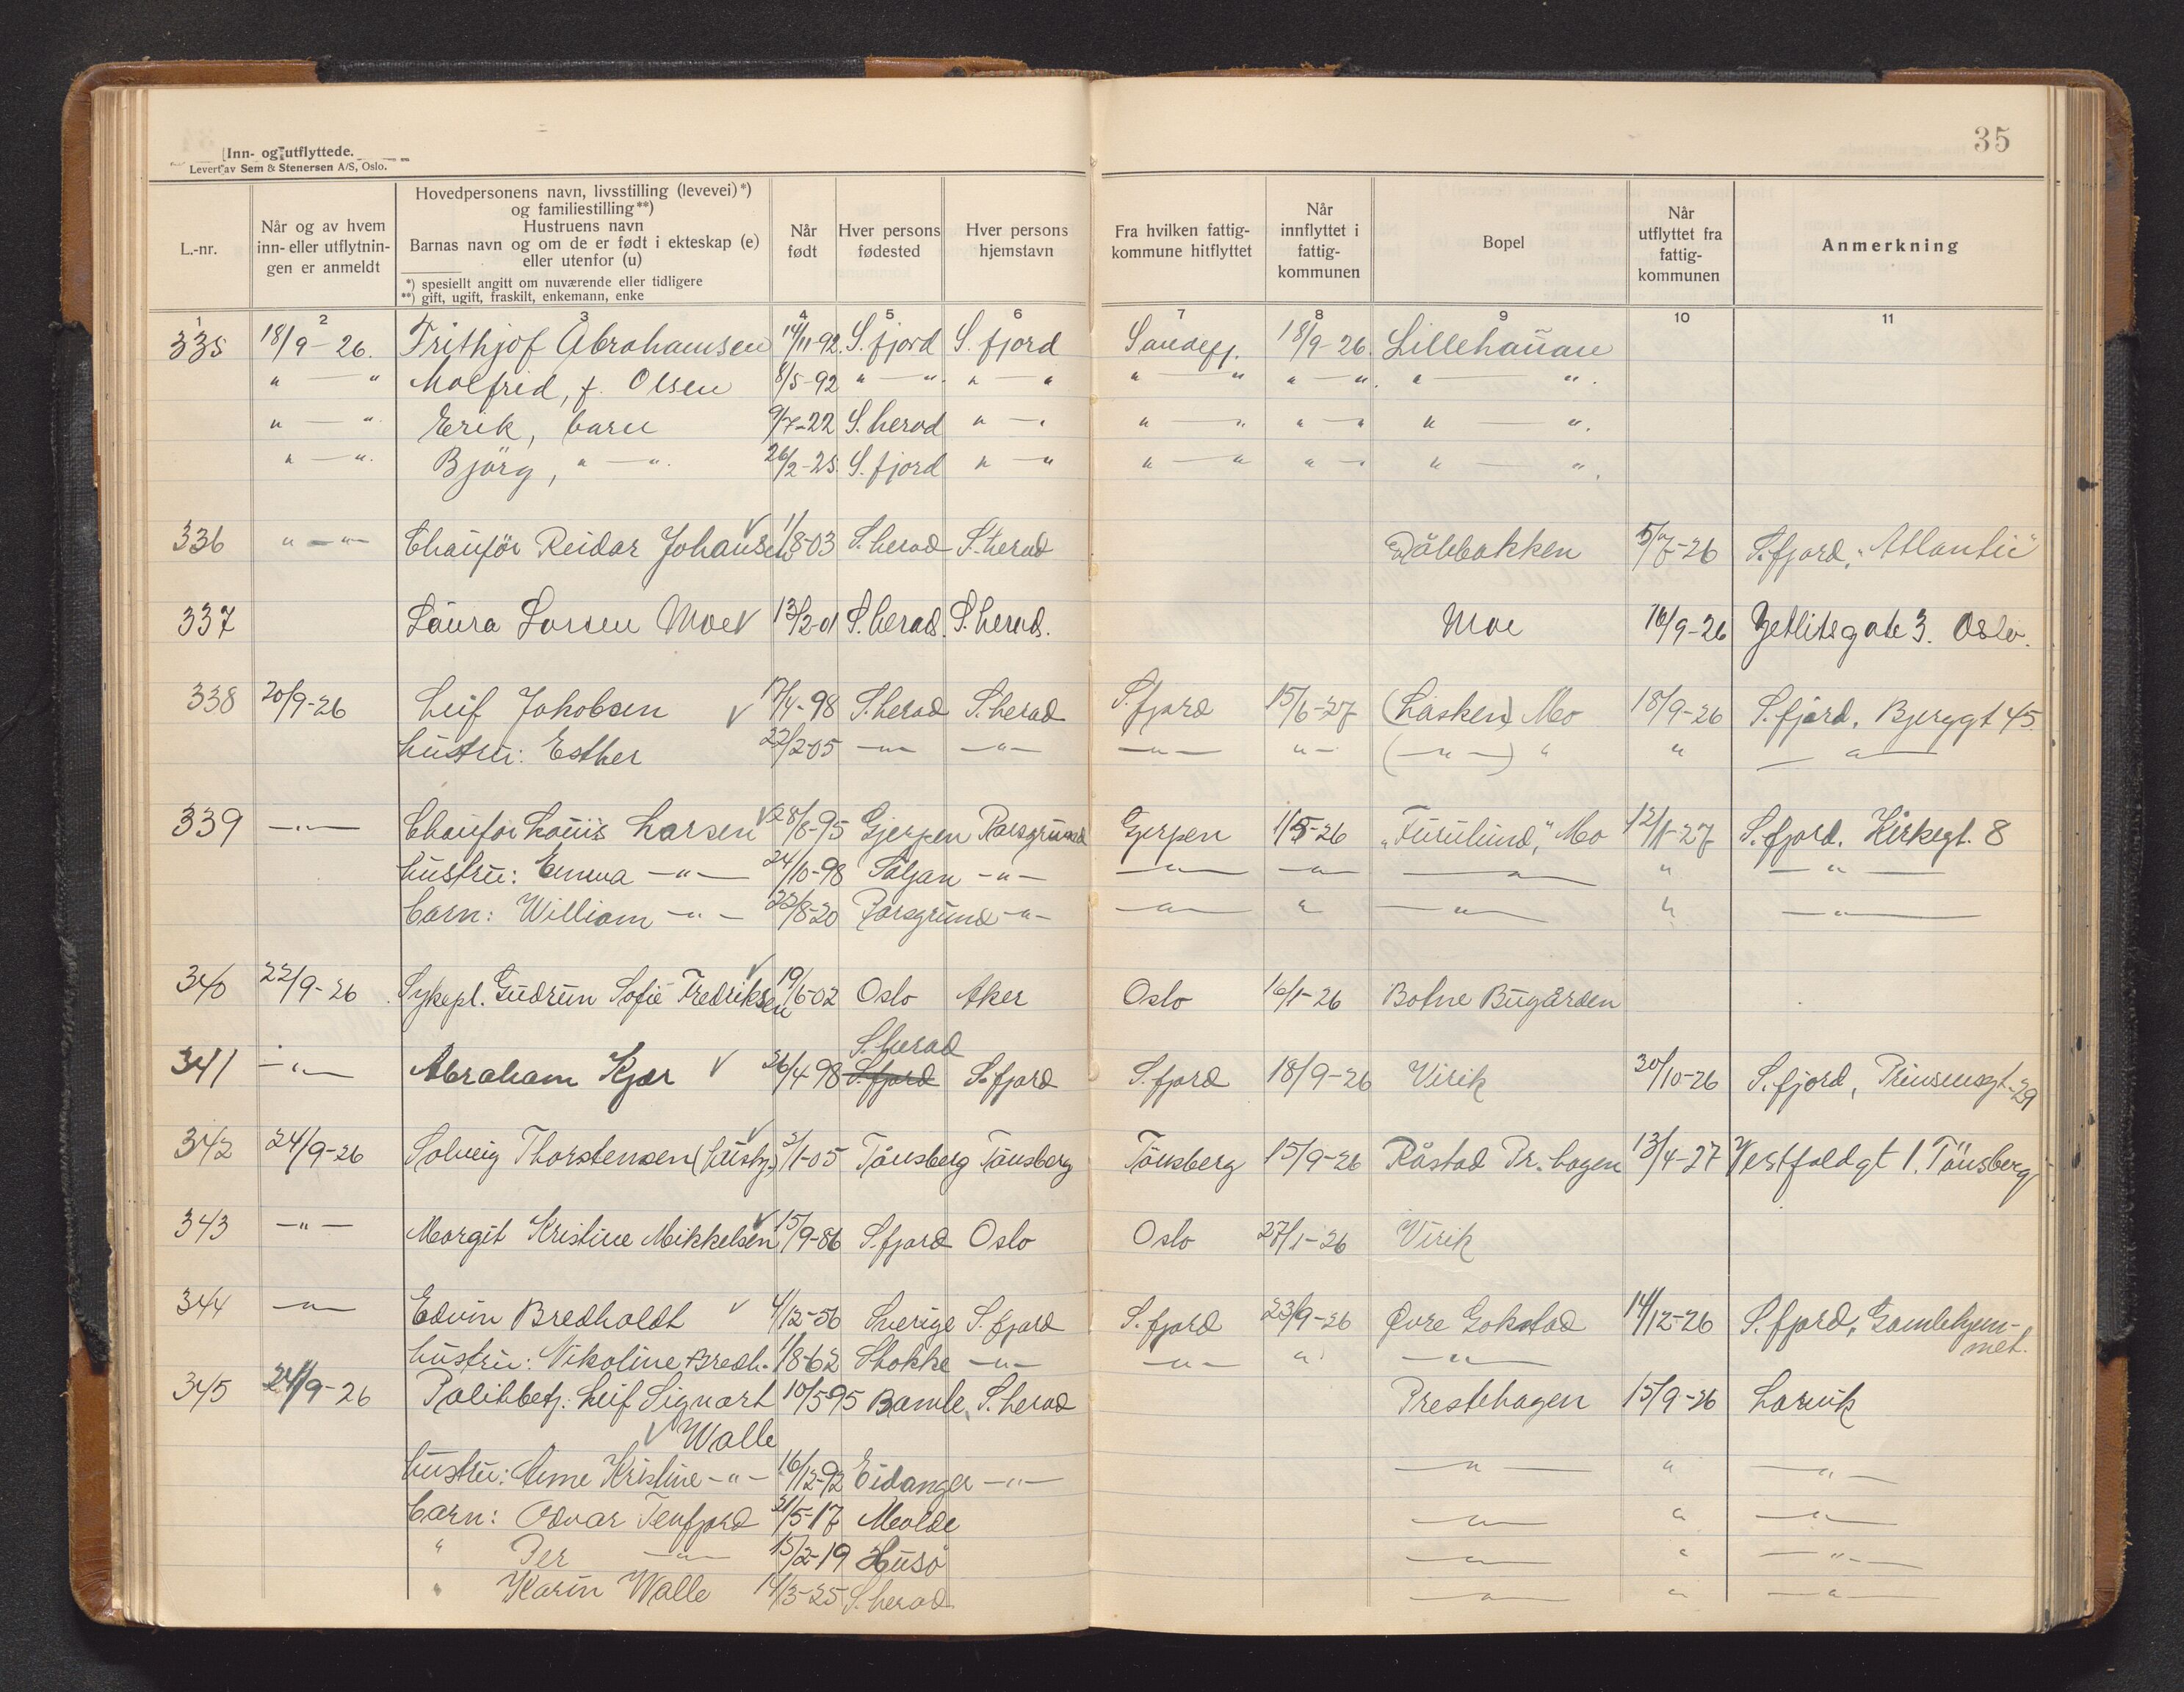 35
Inn- og utflyttede.
Levert av Sem & Stenersen A/S, Oslo.
L.-nr. | Når og av hvem inn- eller utflytningen er anmeldt | Hovedpersonens navn, livsstilling (levevei)*) og familiestilling**) Hustruens navn Barnas navn og om de er født i ekteskap (e) eller utenfor (u) *) spesiellt angitt om nuværende eller tidligere **) gift, ugift, fraskilt, enkemann, enke | Når født | Hver persons fødested | Hver persons hjemstavn | Fra hvilken fattigkommune hitflyttet | Når innflyttet i fattigkommunen | Bopel | Når utflyttet fra fattigkommunen | Anmerkning
1 2 3 4 5 6 7 8 9 10 11
335 18/9-26. Frithjof Abrahamsen 14/11-92. S. fjord S. fjord Sandefj. 18/9-26. Lillehaugan
" — " Molfrid, f. Olsen 8/5-92 " — " " — " " — " " — " " — "
" — " Erik, barn 9/7-22 S. herad " — " " — " " — " " — "
" — " Bjørg, " — " 26/2-25 S. fjord " — " " — " " — " " — "
336 " — " Chauför Reidar Johansen 1/8-03 S. herad S. herad Råbbakken 5/7-26 S. fjord, "Atlantic"
337 Laura Larsen Moe 13/2-01 S. herad. S. herad. Moe 16/9-26 Getlitsgate 3. Oslo.
338 20/9-26 Leif Jakobsen 17/4-98 S. herad S. herad S. fjord 15/6-27 (Lasken) Mo 18/9-26 S. fjord, Bjerggt 45.
hustru: Esther 22/2-05 — " — — " — — " — " — (— " —) " " — " —
339 — " — Chaufør Louis Larsen 28/8-95 Gjerpen Porsgrund Gjerpen 1/5-26 "Furulund," Mo 12/1-27 S. fjord. Kirkegt. 8
hustru: Emma — " — 24/10-98 Siljan — " — — " — — " — — " — " — " —
barn: William — " — 22/8-20 Porsgrund — " — — " — " — " — " — " —
340 22/9-26 Sykepl. Gudrun Sofie Fredriksen 19/6-02 Oslo Aker Oslo 16/1-26 Botne Bugården
S. herad
341 — " — Abraham Kjær 26/4-98 S. fjord S. fjord S. fjord 18/9-26 Virik 30/10-26 S. fjord, Prinsensgt. 29
342 24/9-26 Solveig Thorstensen (hushj.) 2/1-05 Tønsberg Tønsberg Tønsberg 15/9-26 Råstad Pr. hagen 13/4-27 Vestfoldgt 1. Tønsberg
343 — " — Margit Kristine Mikkelsen 15/9-86 S. fjord Oslo Oslo 27/1-26 Virik
344 — " — Edvin Bredholdt 4/12-56 Sverige S. fjord S. fjord 23/9-26 Øvre Gokstad 14/12-26 S. fjord, Gamlehjemmet.
hustru: Nikoline Bredh. 1/8-62 Stokke — " — — " — " — " —
345 24/9-26 Politibetj. Leif Sigvart 10/5 95 Bamle S. herad Prestehagen 15/9-26 Larvik
Walle
hustru: Anne Kristine — " — 16/12-92 Eidanger — " — — " — " — " —
barn: Odvar Tenfjord 31/5-17 Molde — " — " — " —
" Per — " — 15/2-19 Husö — " — " — " —
" Karin Walle 14/3-25 S. herad — " — " — " —